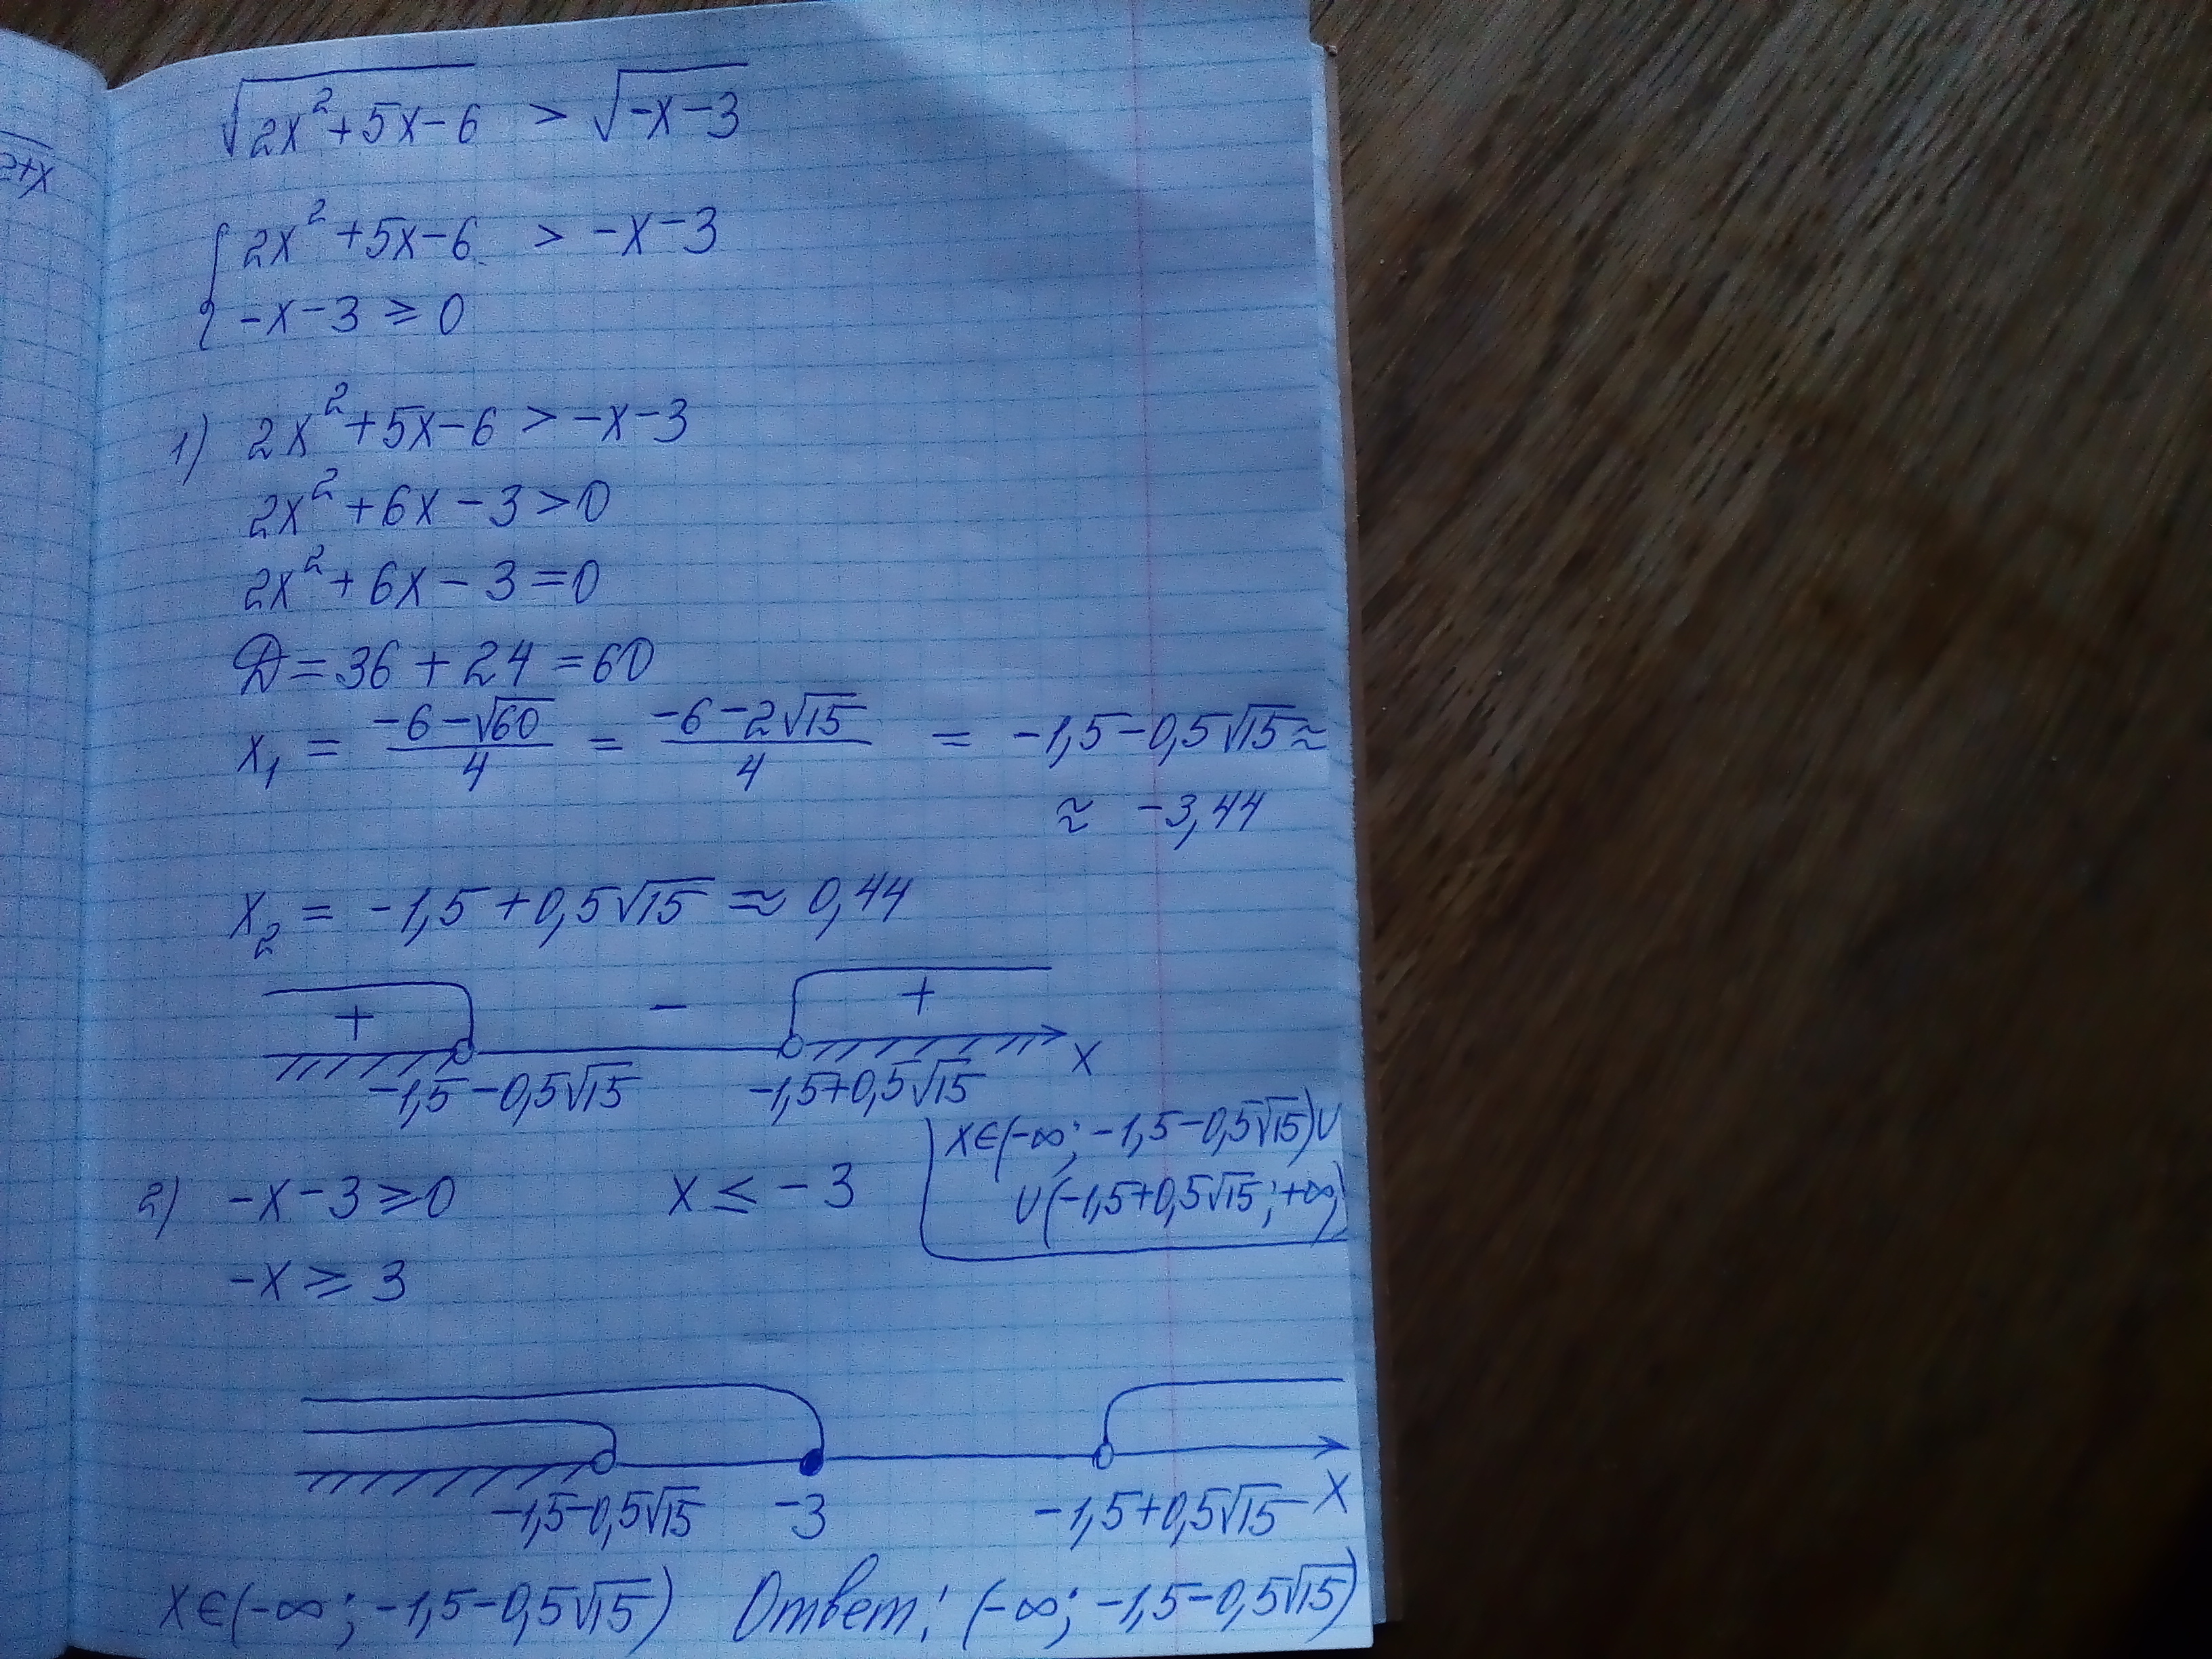 2+x
√(2x²+5x-6) > √(-x-3)
{ 2x²+5x-6 > -x-3
-x-3 ≥ 0
1) 2x²+5x-6 > -x-3
2x²+6x-3>0
2x²+6x-3=0
D=36+24=60
x₁ = (-6-√60)/4 = (-6-2√15)/4 = -1,5-0,5√15 ≈
≈ -3,44
x₂ = -1,5+0,5√15 ≈ 0,44
+ - +
-1,5-0,5√15 -1,5+0,5√15 x
x∈(-∞; -1,5-0,5√15)∪
∪(-1,5+0,5√15; +∞)
2) -x-3≥0 x ≤ -3
-x ≥ 3
-1,5-0,5√15 -3 -1,5+0,5√15 x
x∈(-∞; -1,5-0,5√15) Ответ: (-∞; -1,5-0,5√15)